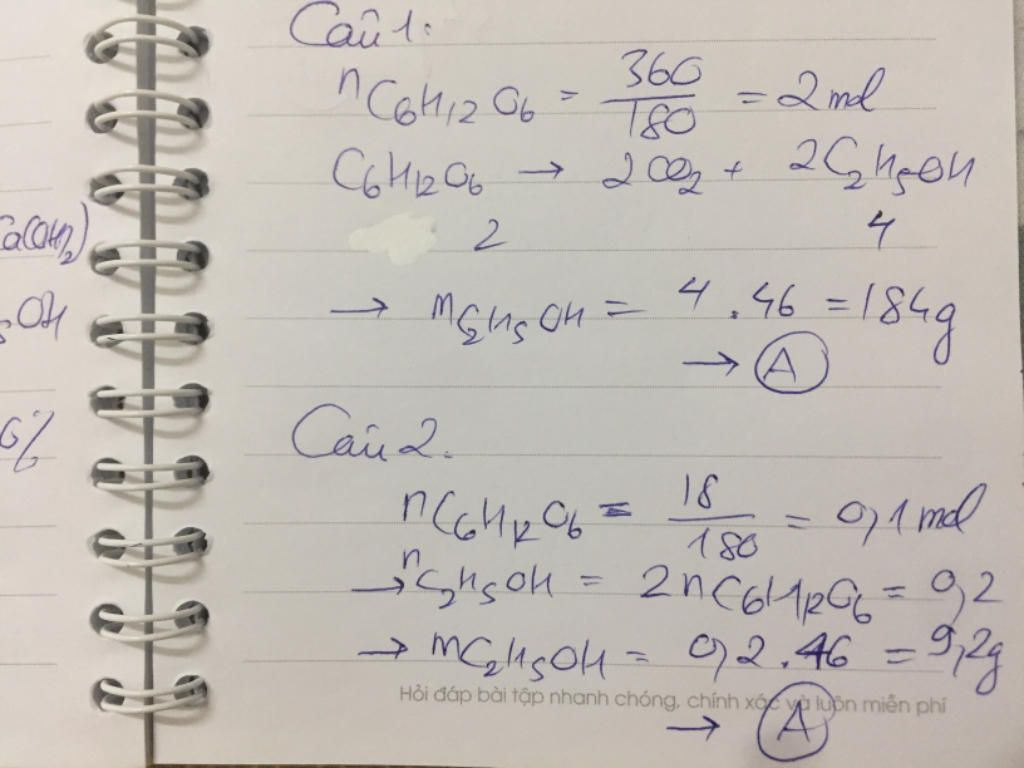 Câu 1:
nC6H12O6 = 360/180 = 2 mol
C6H12O6 → 2CO2 + 2C2H5OH
2 4
→ mC2H5OH = 4.46 = 184g
→ A
Câu 2.
nC6H12O6 = 18/180 = 0,1 mol
→ nC2H5OH = 2nC6H12O6 = 0,2
→ mC2H5OH = 0,2.46 = 9,2g
Hỏi đáp bài tập nhanh chóng, chính xác và luôn miễn phí
→ A
Ca(OH)2
5OH
%